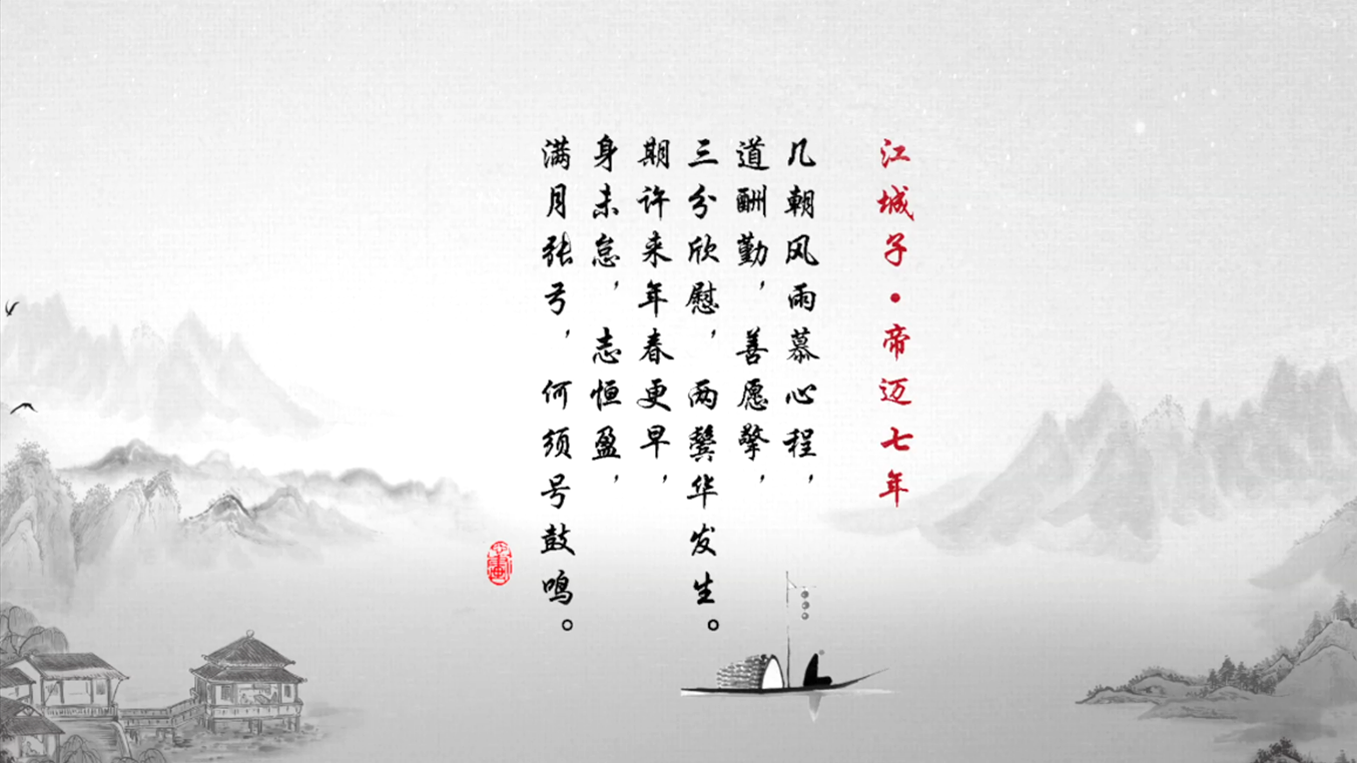 江城子·帝迈七年
几朝风雨慕心程，
道酬勤，善愿擎，
三分欣慰，两鬓华发生。
期许来年春更早，
身未怠，志恒盈，
满月张弓，何须号鼓鸣。